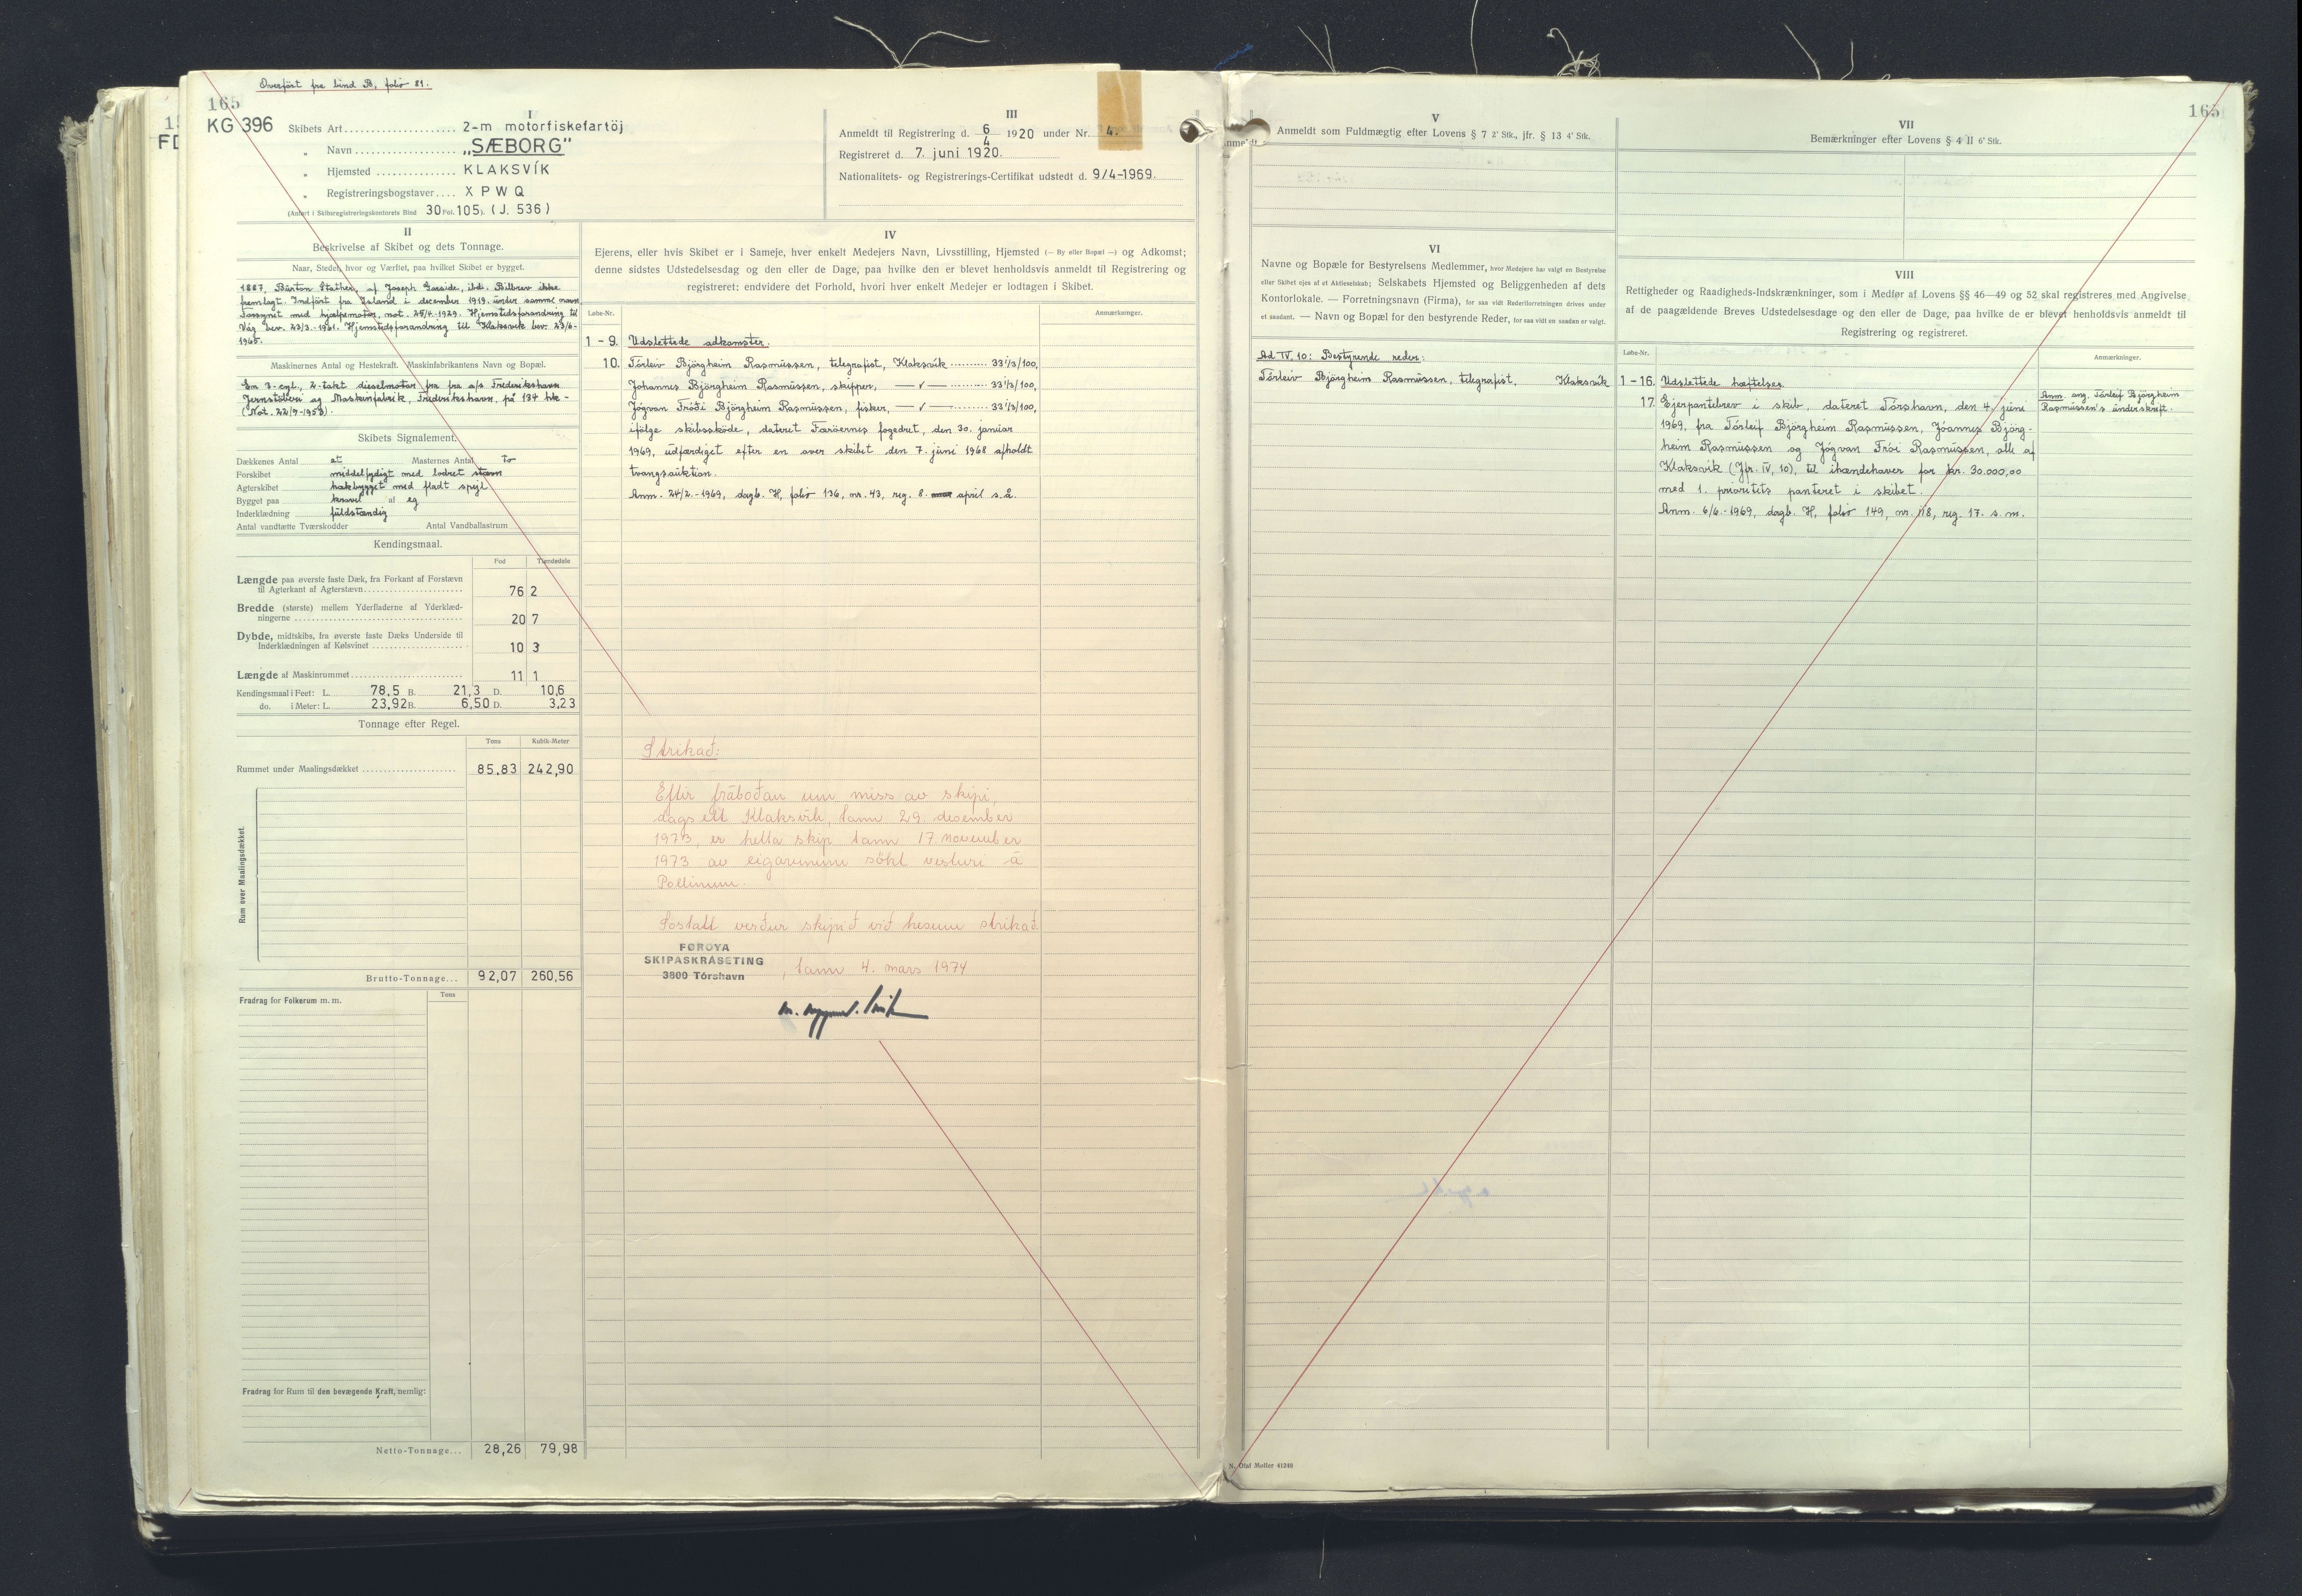 Overført fra bind B, folio 81.
165
KG 396
I
Skibets Art 2-m motorfiskefartöj
" Navn „SÆBORG"
" Hjemsted KLAKSVÍK
" Registreringsbogstaver X P W Q
(Anført i Skibsregistreringskontorets Bind 30 Fol. 105). (J. 536)
III
Anmeldt til Registrering d. 6/4 1920 under Nr. 4.
Registreret d. 7. juni 1920.
Nationalitets- og Registrerings-Certifikat udstedt d. 9/4-1969.
II
Beskrivelse af Skibet og dets Tonnage.
Naar, Stedet, hvor og Værftet, paa hvilket Skibet er bygget.
1887, Burton Stather, af Joseph Garside, ibd. Bilbrev ikke
fremlagt. Indført fra Island i december 1919 under samme navn
Forsynet med hjælpemotor, not. 25/4-1929. Hjemstedsforandring til
Våg bev. 23/3-1961. Hjemstedsforandring til Klaksvík bev. 23/6-
1965.
Maskinernes Antal og Hestekraft. Maskinfabrikantens Navn og Bopæl.
En 3-cyl., 2-takt dieselmotor fra fra a/s Frederikshavn
Jernstøberi og Maskinfabrik, Frederikshavn, på 134 hk -
(Not. 22/9-1953).
Skibets Signalement.
Dækkenes Antal et Masternes Antal to
Forskibet middelfyldigt med lodret stævn
Agterskibet hakbygget med fladt spejl
Bygget paa kravel af eg
Inderklædning fuldstændig
Antal vandtætte Tværskodder Antal Vandballastrum
Kendingsmaal.
Fod Tiendedele
Længde paa øverste faste Dæk, fra Forkant af Forstævn
til Agterkant af Agterstævn 76 2
Bredde (største) mellem Yderfladerne af Yderklæd-
ningerne 20 7
Dybde, midtskibs, fra øverste faste Dæks Underside til
Inderklædningen af Kølsvinet 10 3
Længde af Maskinrummet 11 1
Kendingsmaal i Feet: L. 78,5 B. 21,3 D. 10,6
do. i Meter: L. 23,92 B. 6,50 D. 3,23
Tonnage efter Regel.
Tons Kubik-Meter
Rummet under Maalingsdækket 85,83 242,90
Rum over Maalingsdækket.
Brutto-Tonnage... 92,07 260,56
Fradrag for Folkerum m. m. Tons
Fradrag for Rum til den bevægende Kraft, nemlig:
Netto-Tonnage... 28,26 79,98
IV
Ejerens, eller hvis Skibet er i Sameje, hver enkelt Medejers Navn, Livsstilling, Hjemsted (— By eller Bopæl —) og Adkomst;
denne sidstes Udstedelsesdag og den eller de Dage, paa hvilke den er blevet henholdsvis anmeldt til Registrering og
registreret: endvidere det Forhold, hvori hver enkelt Medejer er lodtagen i Skibet.
Løbe-Nr. Anmærkninger.
1 - 9. Udslettede adkomster.
10. Tórleiv Björgheim Rasmussen, telegrafist, Klaksvík 33 1/3/100,
Jóhannes Björgheim Rasmussen, skipper, — " — 33 1/3/100,
Jógvan Fróði Björgheim Rasmussen, fisker, — " — 33 1/3/100,
ifölge skibsskøde, dateret Færöernes fogedret, den 30. januar
1969, udfærdiget efter en over skibet den 7. juni 1968 afholdt
tvangsauktion.
Anm. 24/2.-1969, dagb. H, folio 136, nr. 43, reg. 8. april s.å.
Strikað:
Eftir fráboðan um miss av skipi,
dagsett Klaksvík, tann 29. desember
1973, er hetta skip tann 17. november
1973 av eigarunum sökt vesturi á
Pollinum.
Sostatt verður skipið við hesum strikað.
FØROYA
SKIPASKRÁSETING
3800 Tórshavn
, tann 4. mars 1974
V
Anmeldt som Fuldmægtig efter Lovens § 7 2' Stk., jfr. § 13 4' Stk.
VI
Navne og Bopæle for Bestyrelsens Medlemmer, hvor Medejere har valgt en Bestyrelse
eller Skibet ejes af et Aktieselskab; Selskabets Hjemsted og Beliggenheden af dets
Kontorlokale. — Forretningsnavn (Firma), for saa vidt Rederiforretningen drives under
et saadant. — Navn og Bopæl for den bestyrende Reder, for saa vidt en saadan er valgt.
Ad IV, 10: Bestyrende reder:
Tórleiv Björgheim Rasmussen, telegrafist, Klaksvík
N. Olaf Møller 41240
165
VII
Bemærkninger efter Lovens § 4 II 6' Stk.
VIII
Rettigheder og Raadigheds-Indskrænkninger, som i Medfør af Lovens §§ 46—49 og 52 skal registreres med Angivelse
af de paagældende Breves Udstedelsesdage og den eller de Dage, paa hvilke de er blevet henholdsvis anmeldt til
Registrering og registreret.
Løbe-Nr. Anmærkninger.
1 - 16. Udslettede hæftelser
17. Ejerpantebrev i skib, dateret Tórshavn, den 4. juni
1969, fra Tórleif Björgheim Rasmussen, Jóannes Björg-
heim Rasmussen og Jógvan Frói Rasmussen, alle af
Klaksvík (Jfr. IV, 10), til ihændehaver for kr. 30.000,00
med 1. prioritets panteret i skibet.
Anm. 6/6.-1969, dagb. H, folio 149, nr. 118, reg. 17. s. m.
Anm. ang. Tórleif Björgheim
Rasmussen's underskrift.